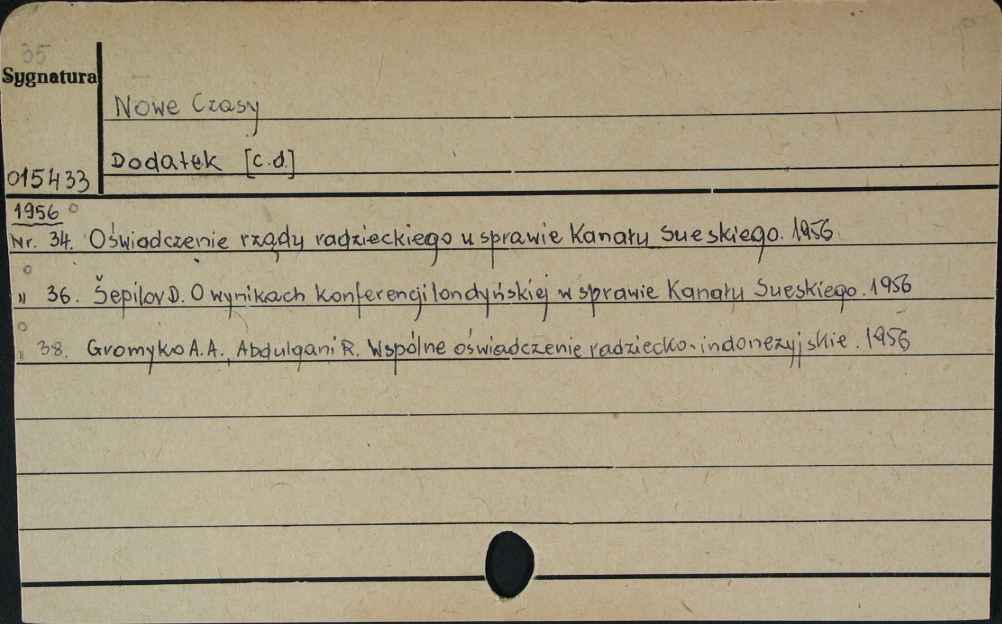 35
Sygnatura
Nowe Czasy
Dodatek [c.d.]
015433
1956
Nr. 34. Oświadczenie rządu radzieckiego w sprawie Kanału Sueskiego. 1956.
" 36. Šepilov D. O wynikach konferencji londyńskiej w sprawie Kanału Sueskiego. 1956
" 38. Gromyko A.A., Abdulgani R. Wspólne oświadczenie radziecko-indonezyjskie. 1956